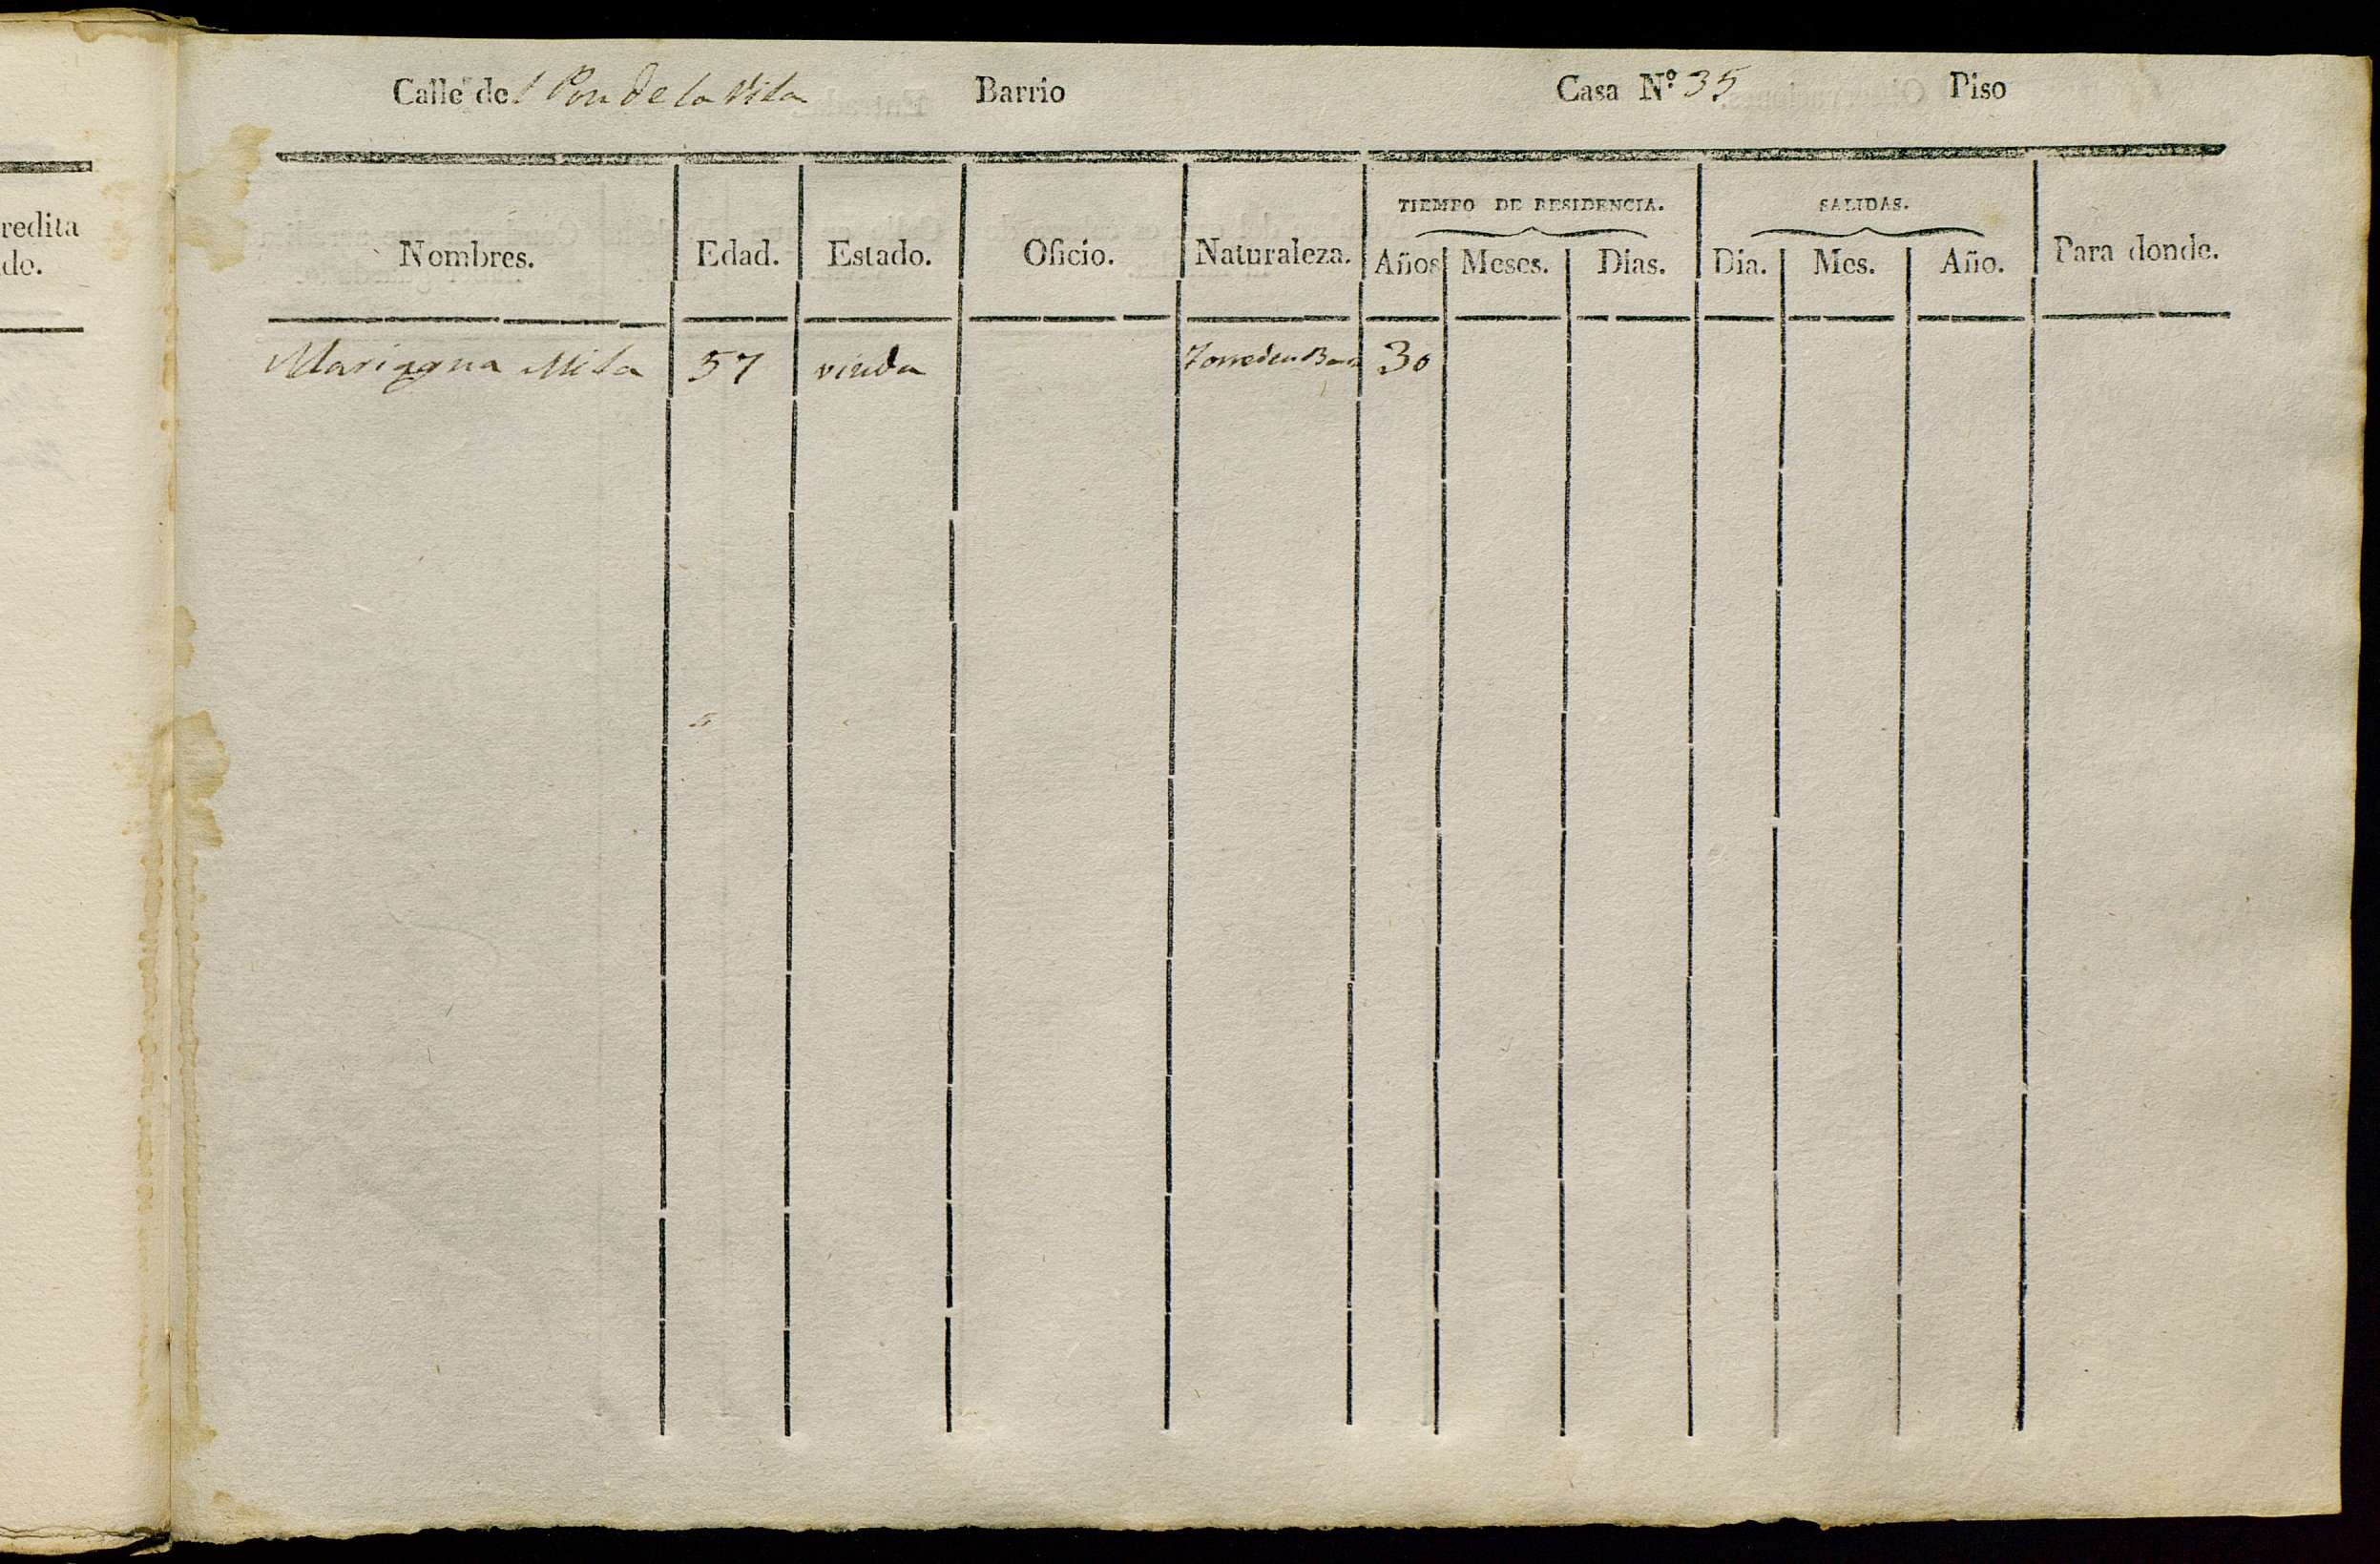 Calle del Pou de la Vila Barrio Casa N.º 35 Piso
redita
do.
TIEMPO DE RESIDENCIA. SALIDAS.
Nombres. Edad. Estado. Oficio. Naturaleza. Años Meses. Dias. Dia. Mes. Año. Para donde.
Mariagna Mila 57 viuda 30